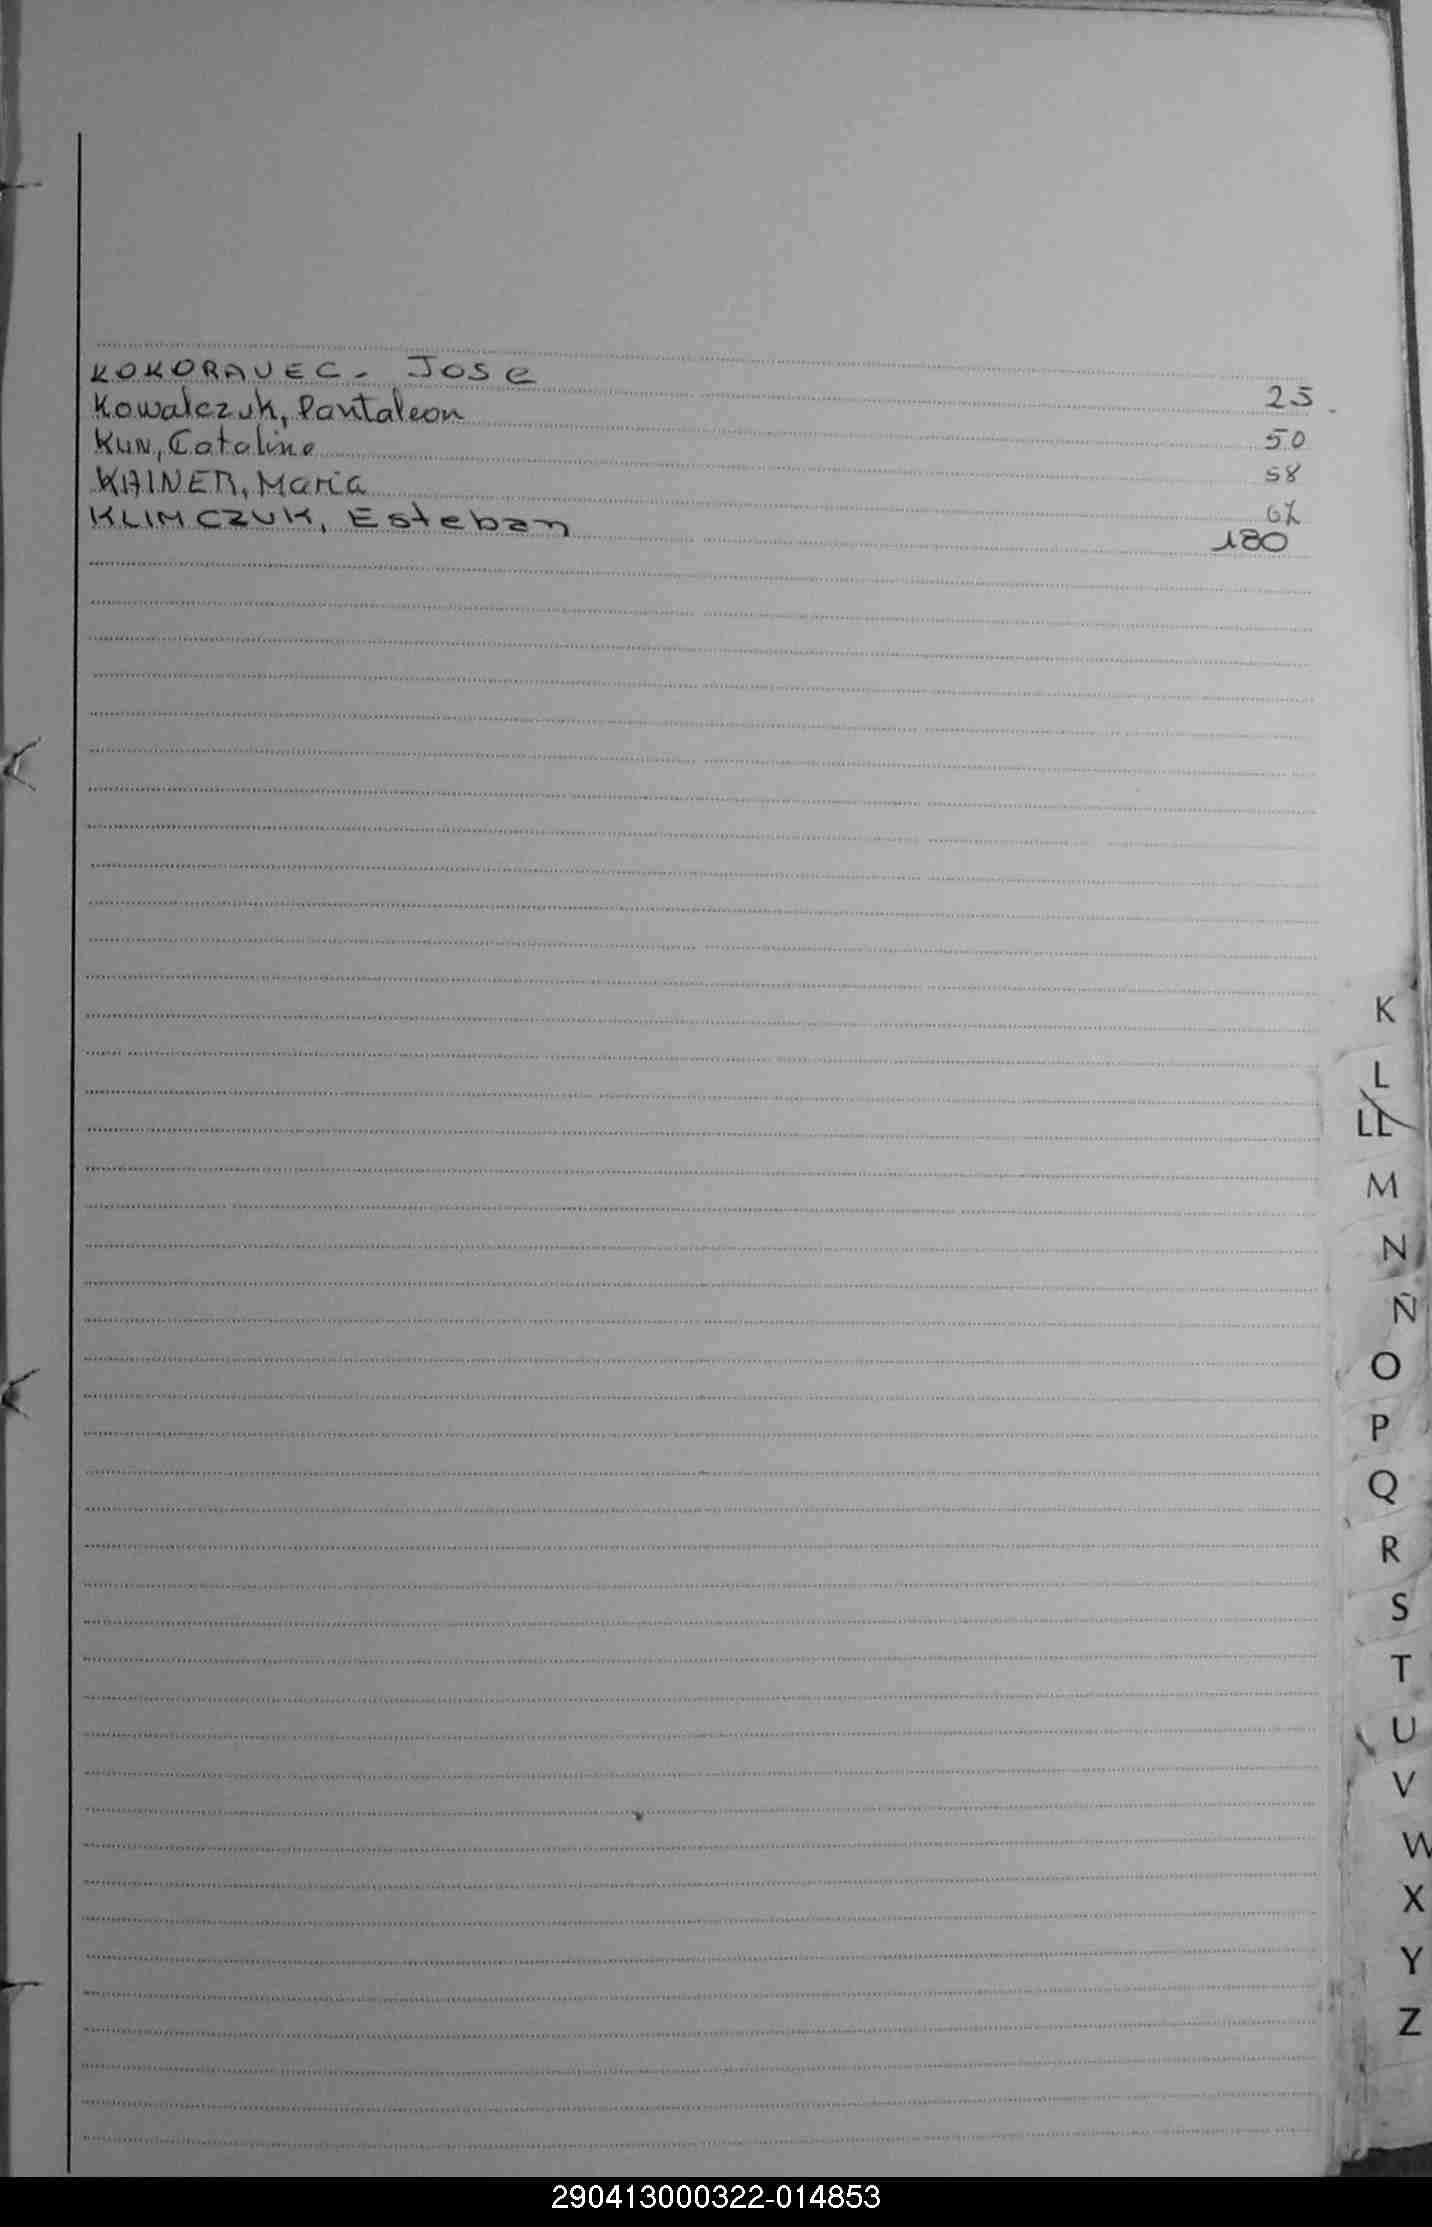 KOKORAVEC - Jose 25.
Kowalczuk, Pantaleon 50
Kun, Catalina 58
KAINER, Maria
KLIMCZUK, Esteban 180
K
L
LL
M
N
Ñ
O
P
Q
R
S
T
U
V
W
X
Y
Z
290413000322-014853